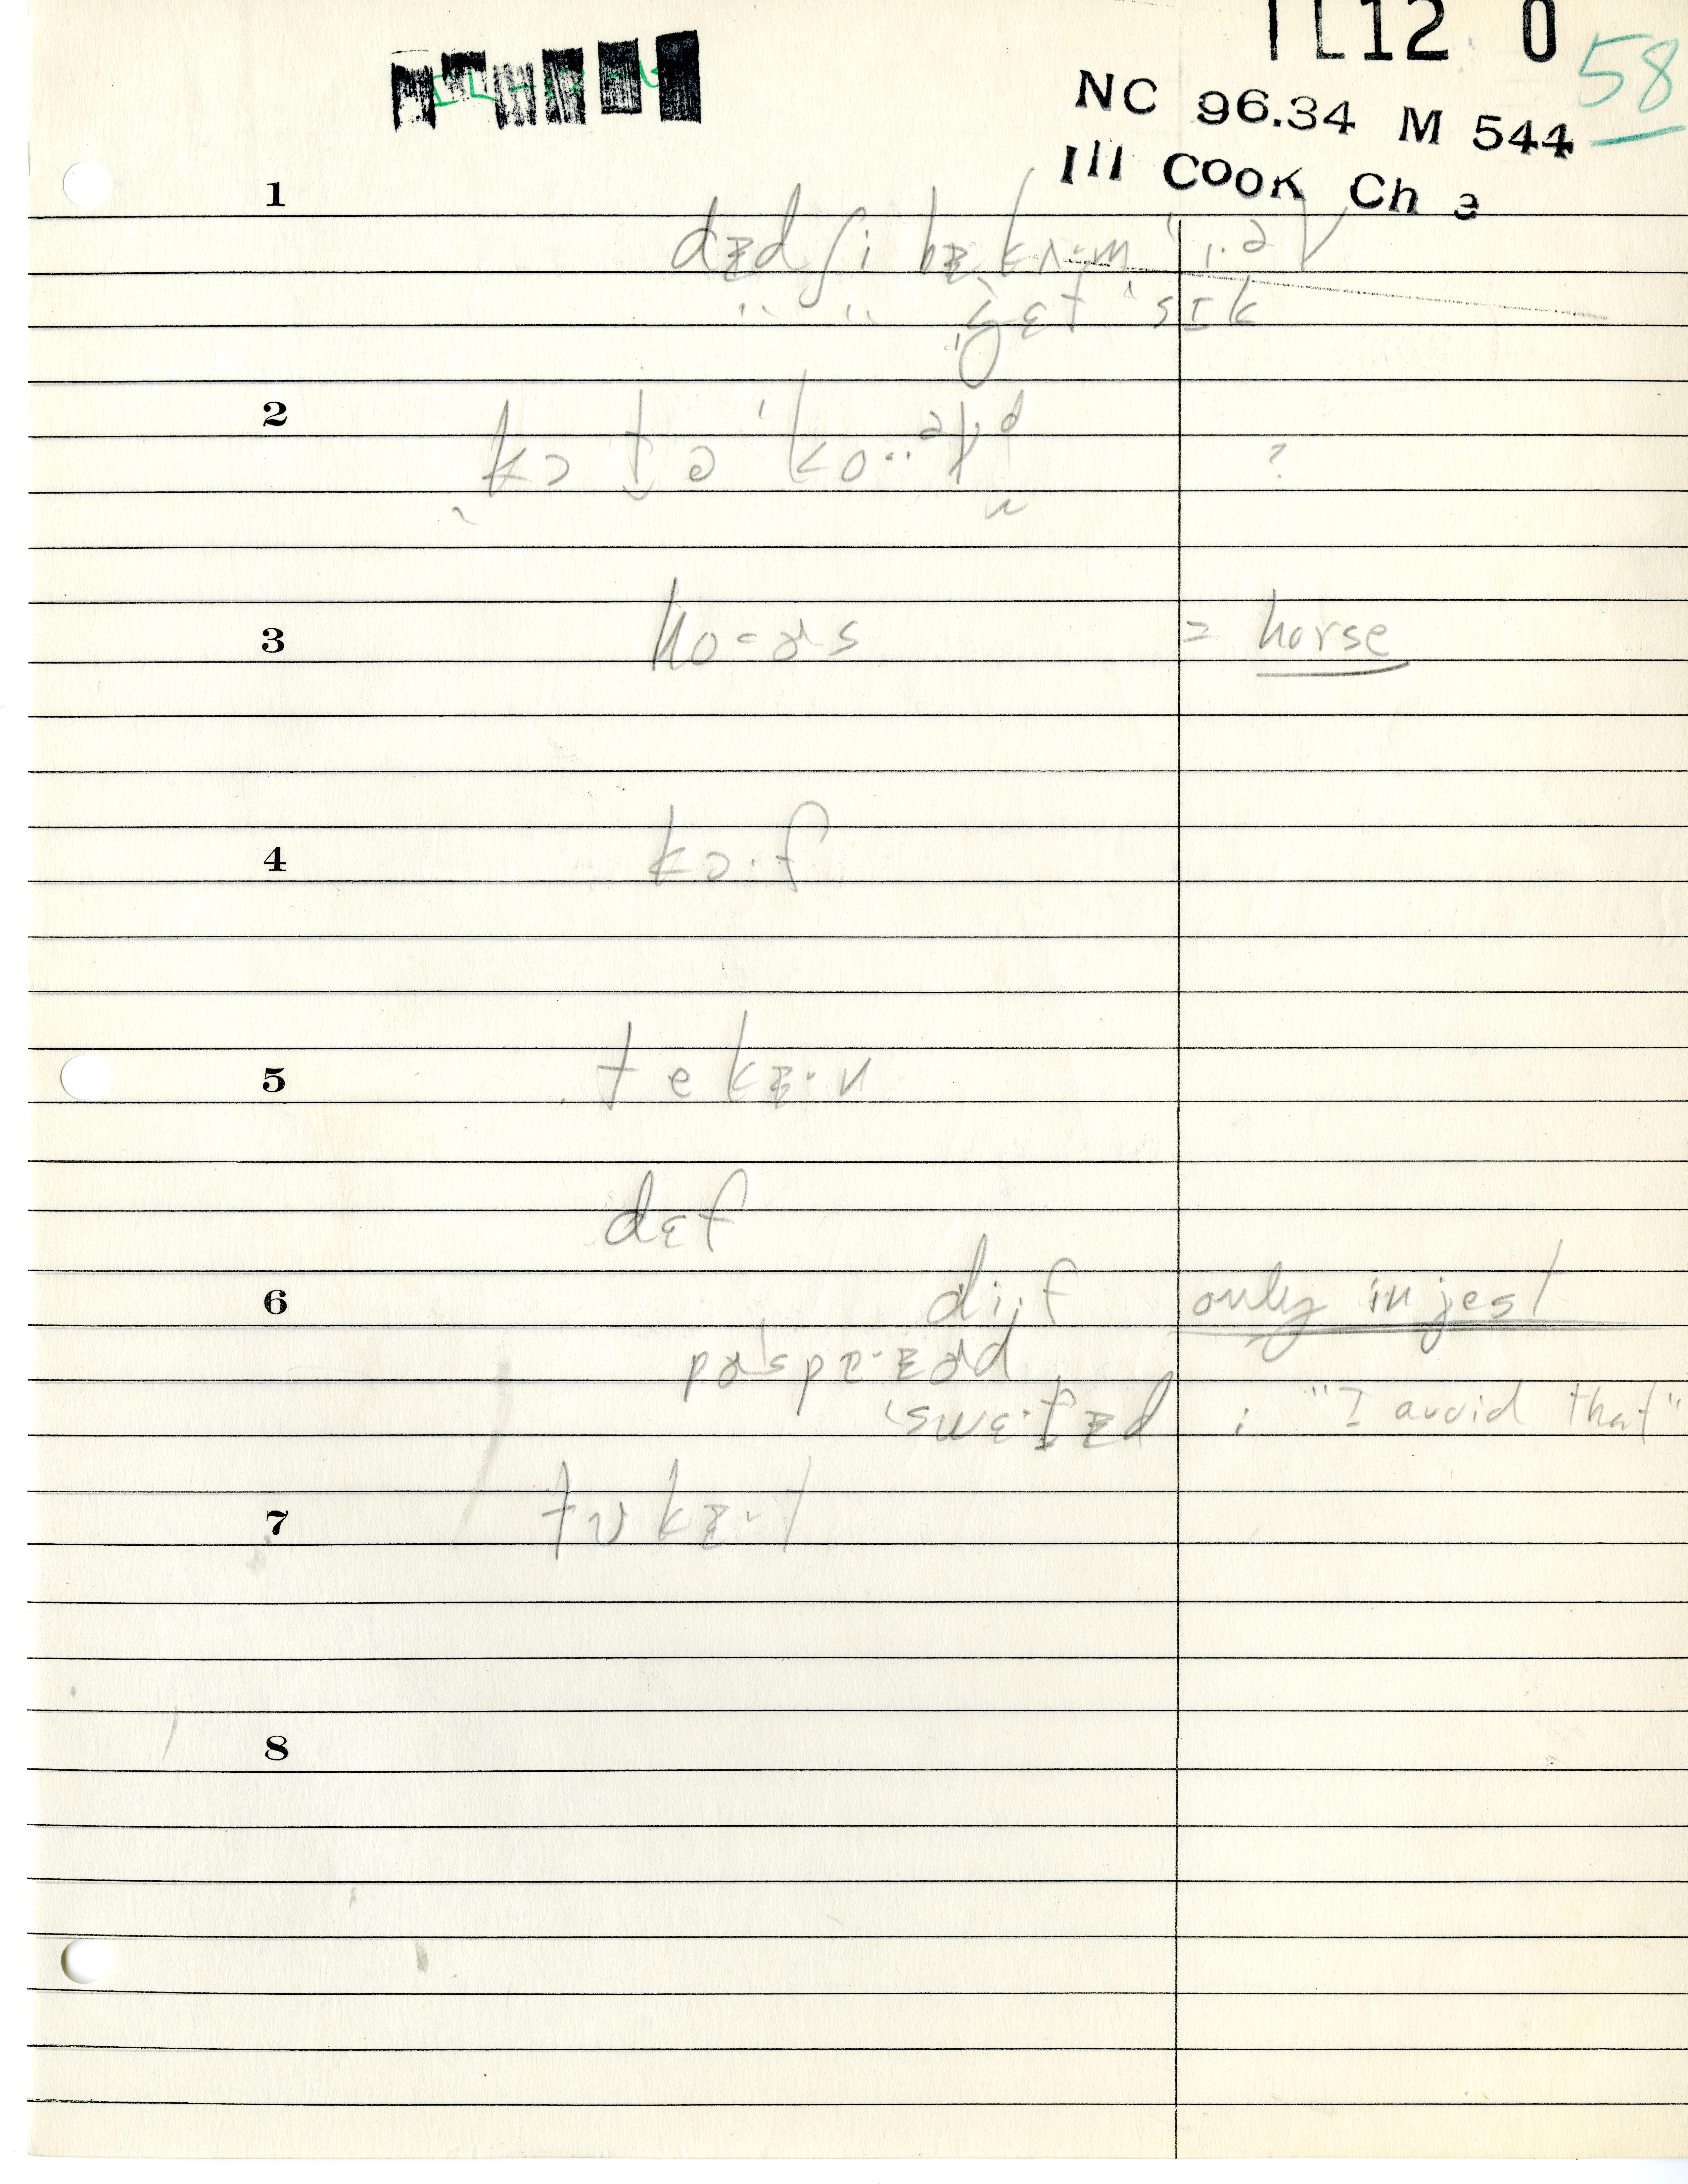 TL12 0
58
NC 96.34 M 544
Ill Cook Ch a
1
dæd ʃi bɪkʌ·m 'ɪ·əl
" " gɛt 'sɪk
2
kɔt ə 'ko..əld ?
3
ho·ɚs = horse
4
kɔ·f
5
tekæ·n
dɛf
6
di·f only in jest
pɚ'spɑ·ɪɚd
'swɛ·tɪd : "I avoid that"
7
tʊkæ·t
8